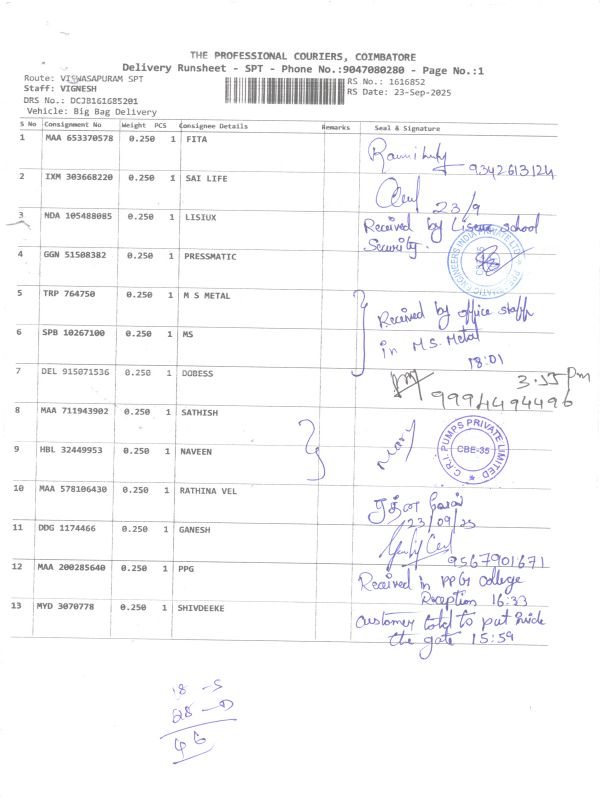 THE PROFESSIONAL COURIERS, COIMBATORE
Delivery Runsheet - SPT - Phone No.:9047080280 - Page No.:1
Route: VISWASAPURAM SPT
RS No.: 1616852
Staff: VIGNESH
RS Date: 23-Sep-2025
DRS No.: DCJB161685201
Vehicle: Big Bag Delivery
S No Consignment No Weight PCS Consignee Details Remarks Seal & Signature
1 MAA 653370578 0.250 1 FITA
9342613124
2 IXM 303668220 0.250 1 SAI LIFE
23/9
3 NDA 105488085 0.250 1 LISIUX
Received by school
Security.
4 GGN 51508382 0.250 1 PRESSMATIC
5 TRP 764750 0.250 1 M S METAL
Received by office staff
6 SPB 10267100 0.250 1 MS
in M.S. Metal
18:01
7 DEL 915071536 0.250 1 DOBESS
3.55 Pm
9994494496
8 MAA 711943902 0.250 1 SATHISH
C.R.I. PUMPS PRIVATE LIMITED
CBE-35
9 HBL 32449953 0.250 1 NAVEEN
10 MAA 578106430 0.250 1 RATHINA VEL
23/09/25
11 DDG 1174466 0.250 1 GANESH
9567901671
12 MAA 200285640 0.250 1 PPG
Received in PPG College
Reception 16:33
13 MYD 3070778 0.250 1 SHIVDEEKE
Customer told to put inside
the gate 15:59
18 - S
28 - D
46